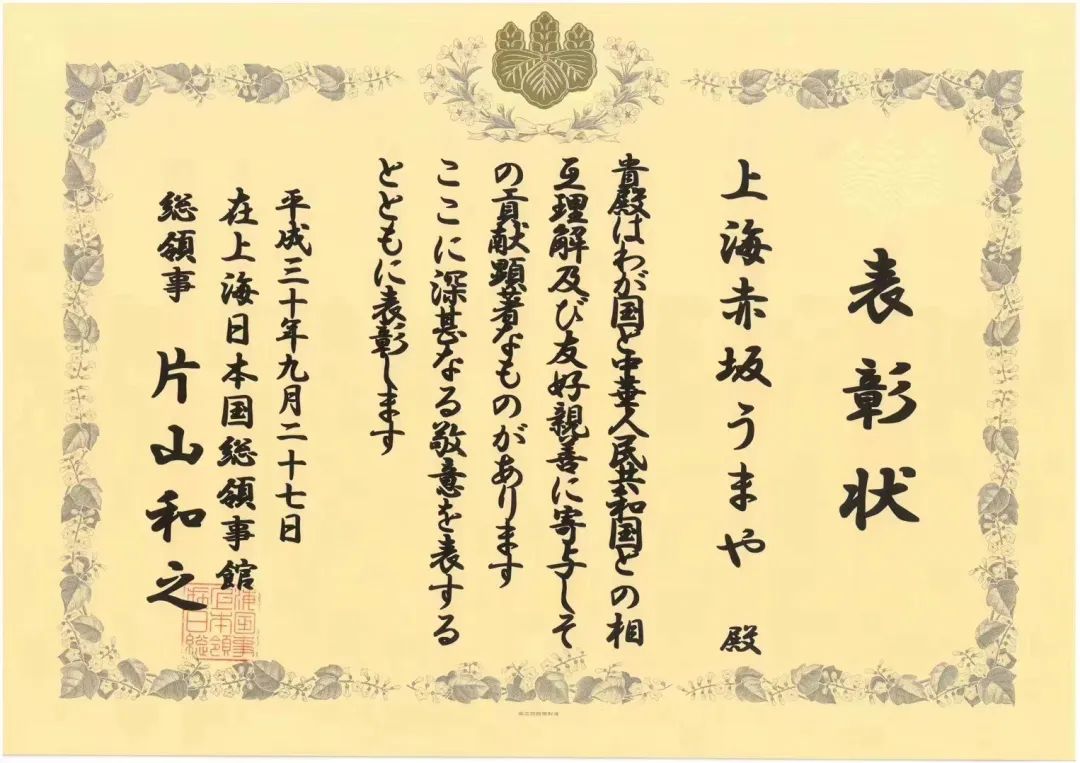 表彰状
上海赤坂うまや　殿
貴殿はわが国と中華人民共和国との相
互理解及び友好親善に寄与しそ
の貢献顕著なものがあります
ここに深甚なる敬意を表する
とともに表彰します
平成三十年九月二十七日
在上海日本国総領事館
総領事　片山和之